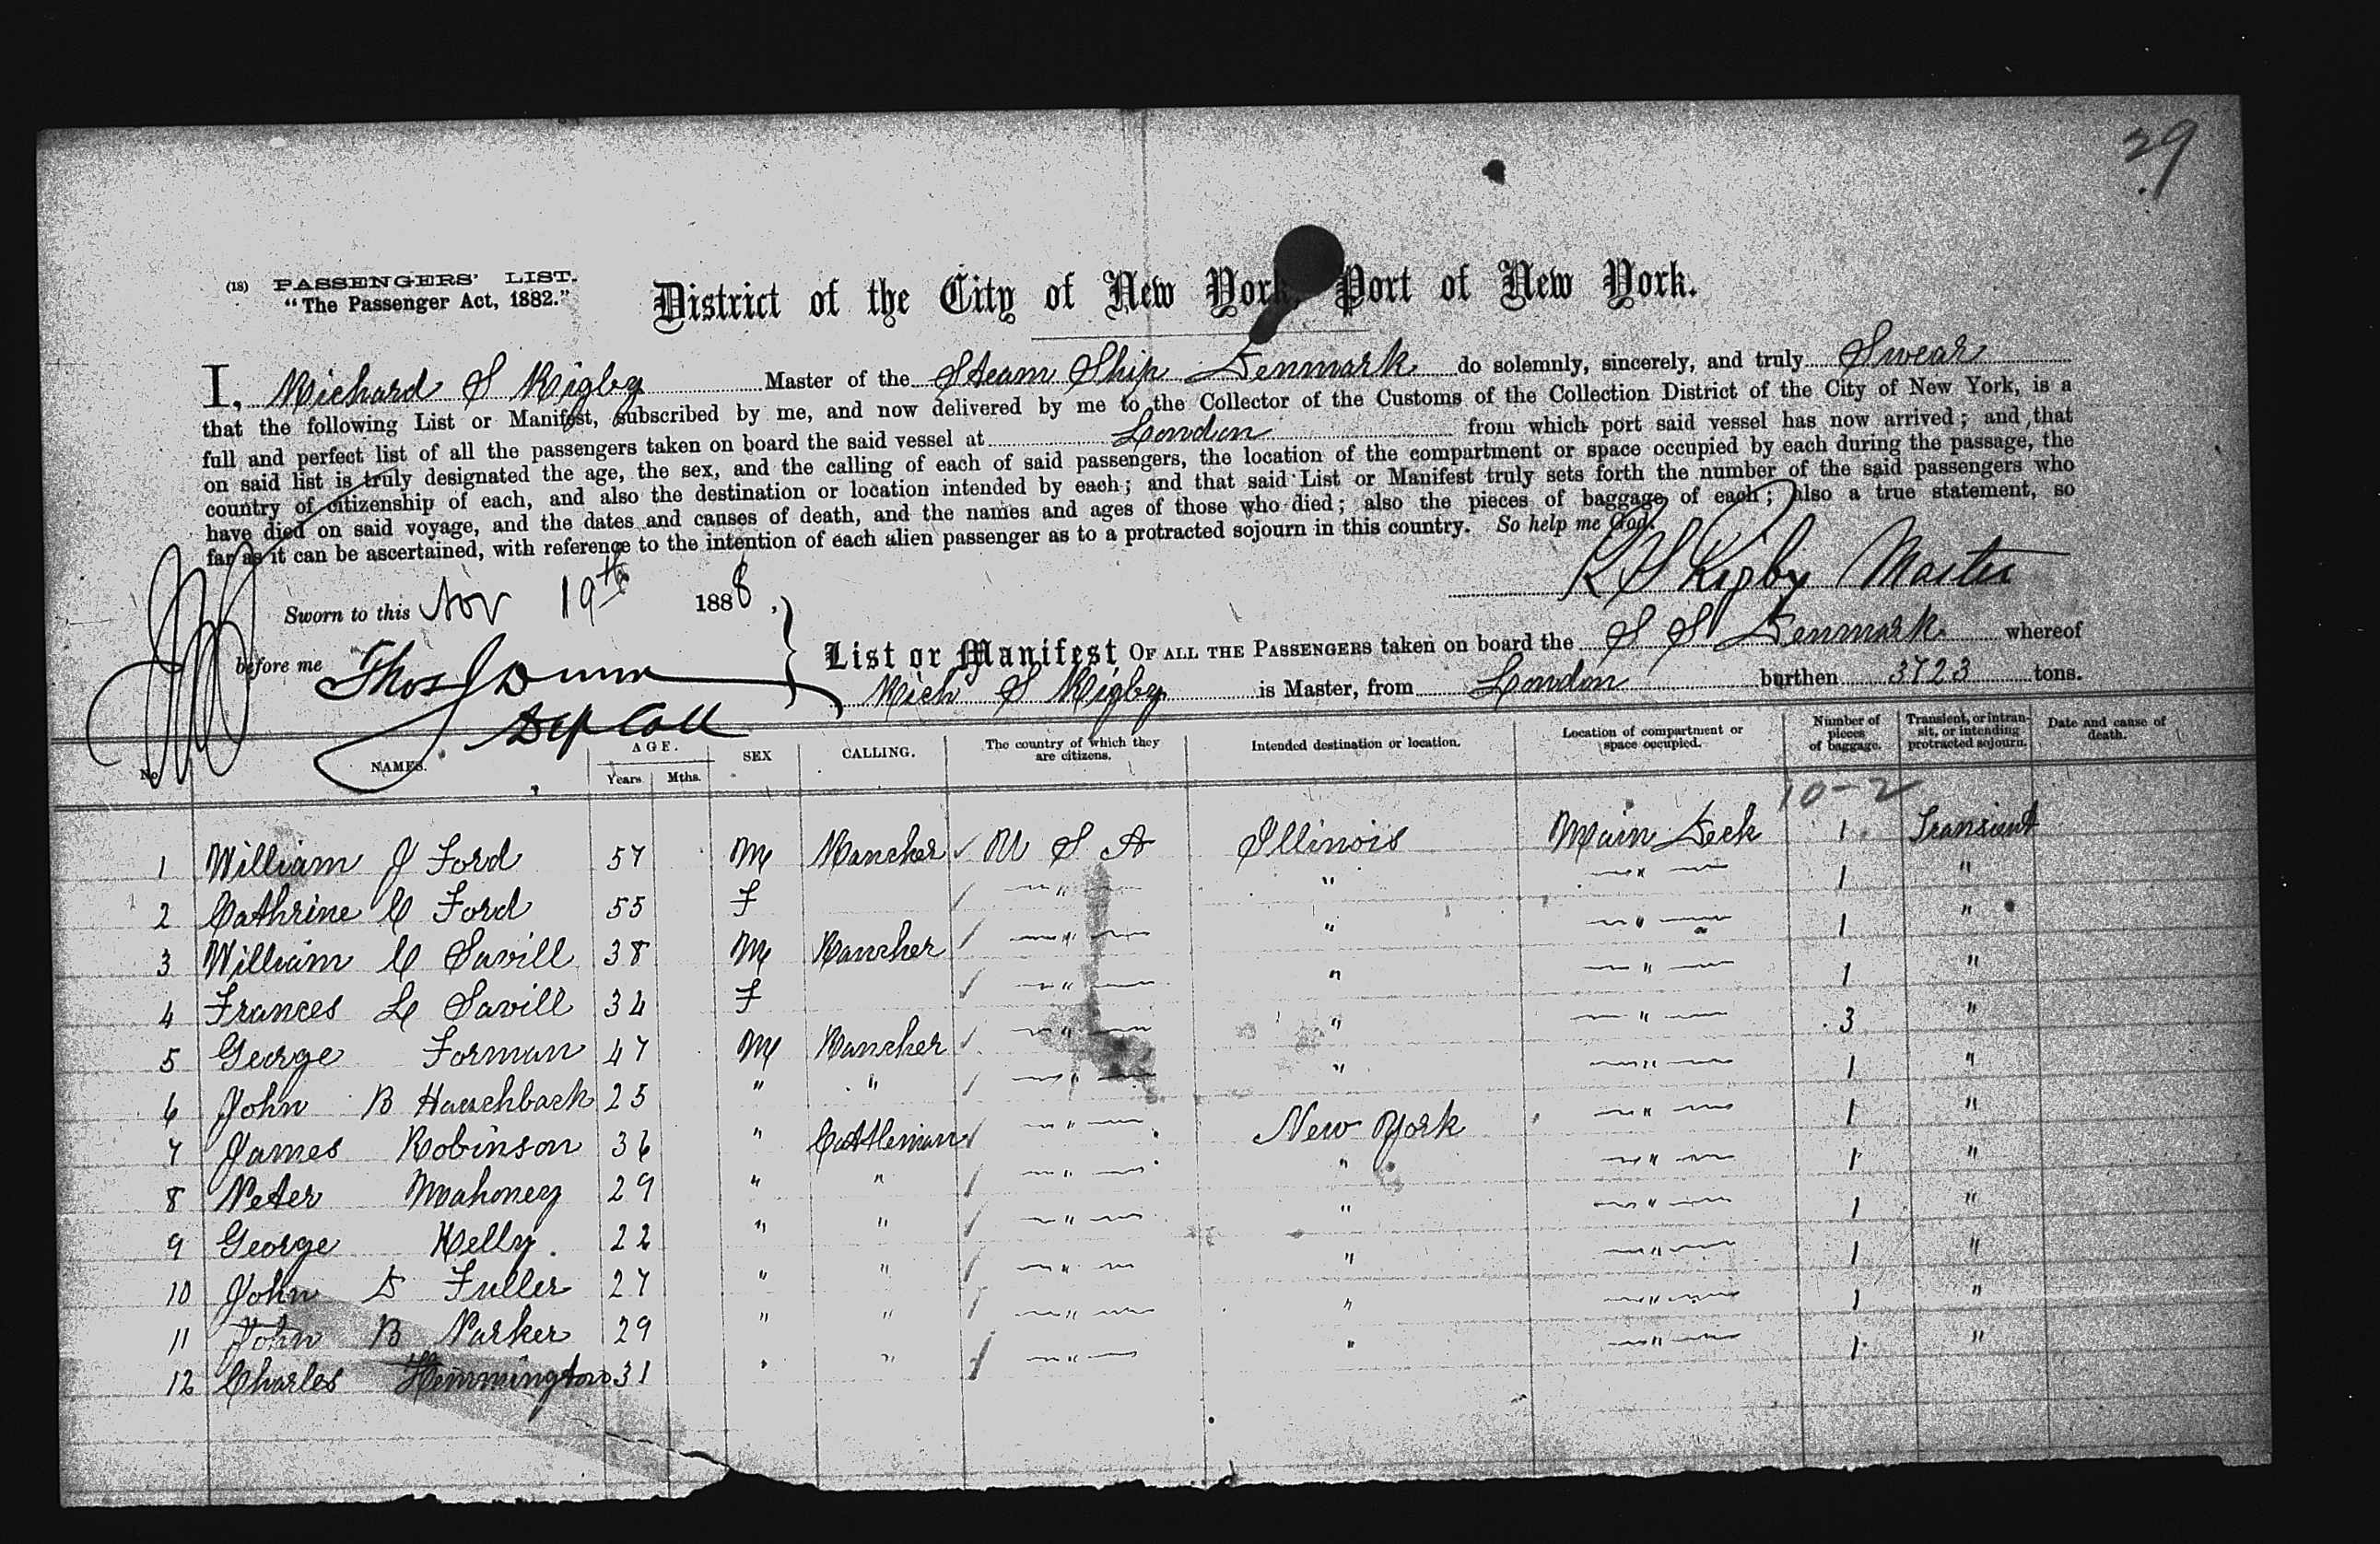 29
(18) PASSENGERS' LIST.
"The Passenger Act, 1882."
District of the City of New York, Port of New York.
I, Richard S Rigby Master of the Steam Ship Denmark do solemnly, sincerely, and truly Swear
that the following List or Manifest, subscribed by me, and now delivered by me to the Collector of the Customs of the Collection District of the City of New York, is a
full and perfect list of all the passengers taken on board the said vessel at London from which port said vessel has now arrived; and that
on said list is truly designated the age, the sex, and the calling of each of said passengers, the location of the compartment or space occupied by each during the passage, the
country of citizenship of each, and also the destination or location intended by each; and that said List or Manifest truly sets forth the number of the said passengers who
have died on said voyage, and the dates and causes of death, and the names and ages of those who died; also the pieces of baggage of each; also a true statement, so
far as it can be ascertained, with reference to the intention of each alien passenger as to a protracted sojourn in this country. So help me God.
R S Rigby Master
Sworn to this Nov 19th 1888,
before me Thos J Dunn
Dep Coll
List or Manifest OF ALL THE PASSENGERS taken on board the S S Denmark whereof
Rich S Rigby is Master, from London burthen 3723 tons.
No. NAMES. AGE. Years Mths. SEX CALLING. The country of which they are citizens. Intended destination or location. Location of compartment or space occupied. Number of pieces of baggage. Transient, or in transit, or intending protracted sojourn. Date and cause of death.
10-2
1 William J Ford 57 M Rancher ✓ U S A Illinois Main Deck 1 Transient
2 Cathrine C Ford 55 F ✓ " " " 1 "
3 William C Savill 38 M Rancher ✓ " " " 1 "
4 Frances L Savill 34 F ✓ " " " 1 "
5 George Forman 47 M Rancher ✓ " " " 3 "
6 John B Hauchback 25 " " ✓ " " " 1 "
7 James Robinson 36 " Cattleman ✓ " New York " 1 "
8 Peter Mahoney 29 " " ✓ " " " 1 "
9 George Kelly. 22 " " ✓ " " " 1 "
10 John D Fuller 27 " " ✓ " " " 1 "
11 John B Parker 29 " " ✓ " " " 1 "
12 Charles Hemmington 31 " " ✓ " " " 1 "